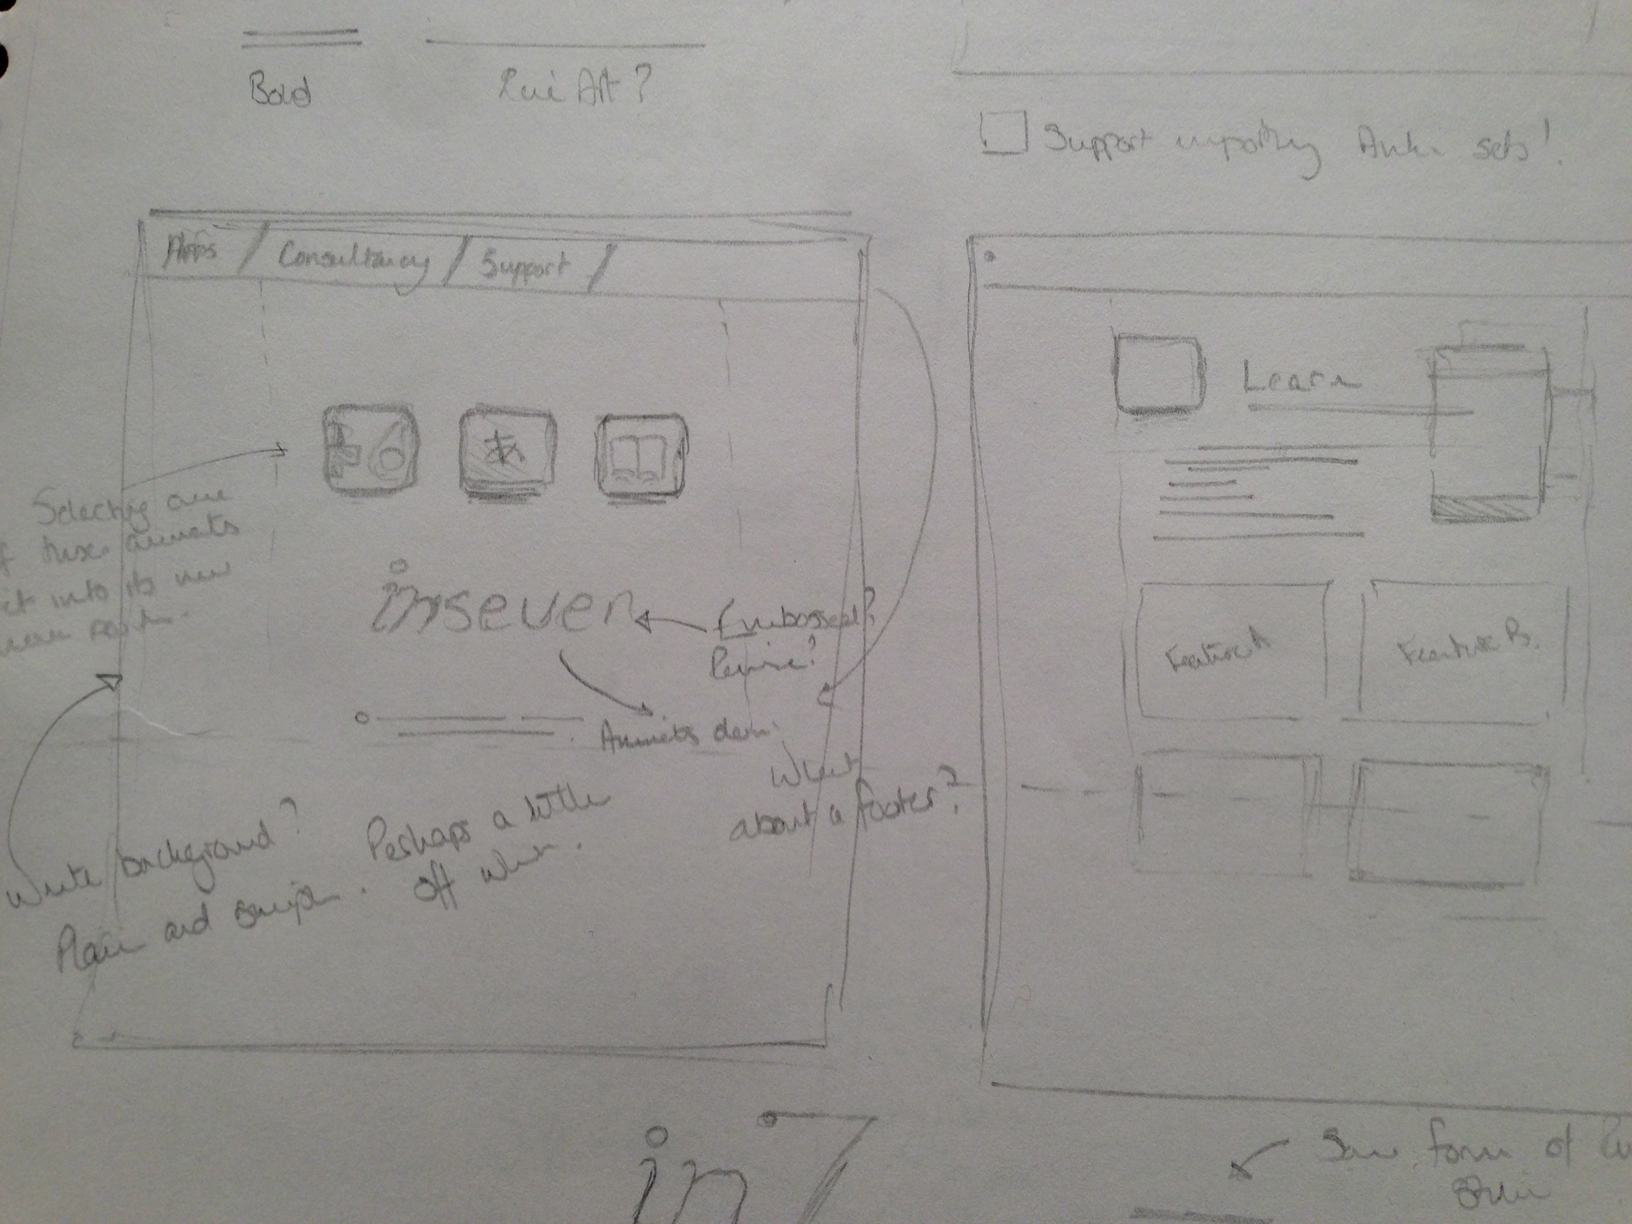 Bold
Line Art?
Support importing Anki sets!
Apps / Consultancy / Support /
Learn
Selecting one
of these animates
it into its new
inseven
Embossed?
Animates down.
What
about a footer?
White background?
Plain and simple. Perhaps a little
off white.
Feature A
Feature B.
in7
Same form of